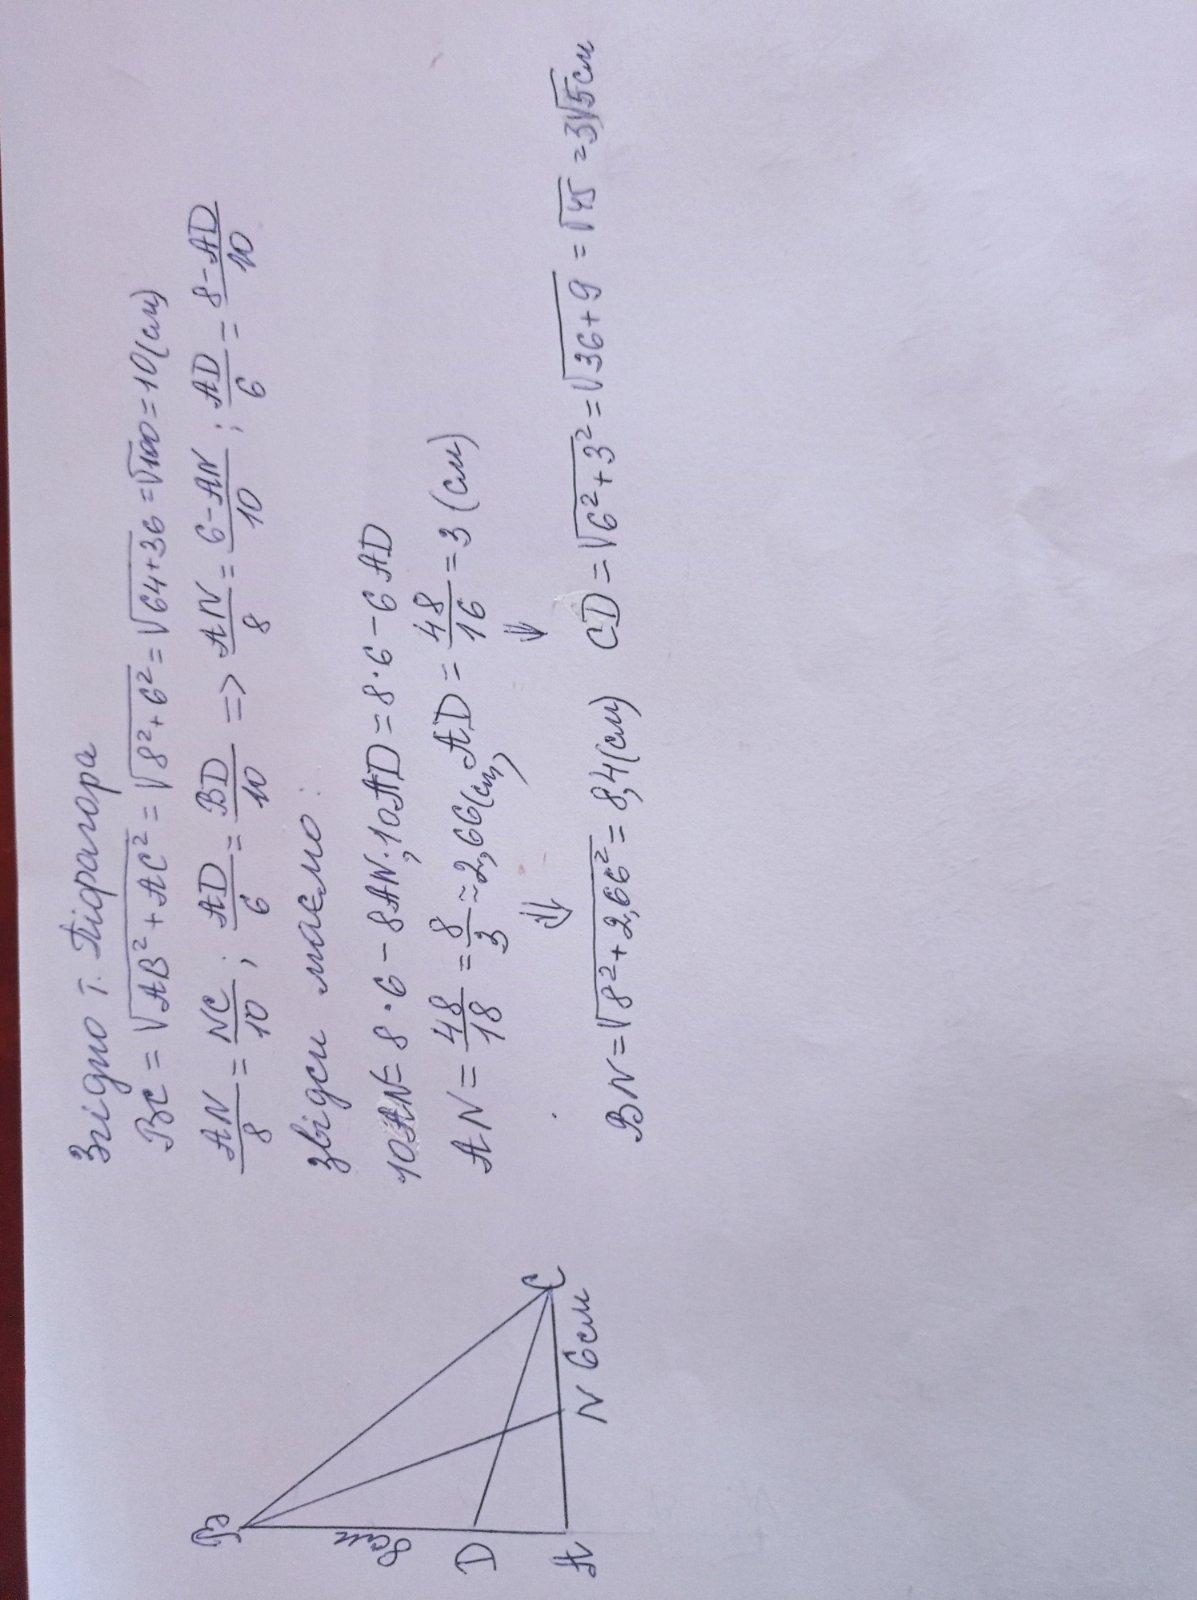 Згідно т. Піфагора
BC = √AB² + AC² = √8² + 6² = √64+36 = √100 = 10(см)
AN/8 = NC/10 ; AD/6 = BD/10 => AN/8 = 6-AN/10 ; AD/6 = 8-AD/10
звідси маємо:
10AN = 8·6 - 8AN; 10AD = 8·6 - 6AD
AN = 48/18 = 8/3 ≈ 2,66(см), AD = 48/16 = 3 (см)
⇓ ⇓
BN = √8² + 2,66² = 8,4(см) CD = √6² + 3² = √36+9 = √45 = 3√5см
B
8см
D
A
N 6см
C